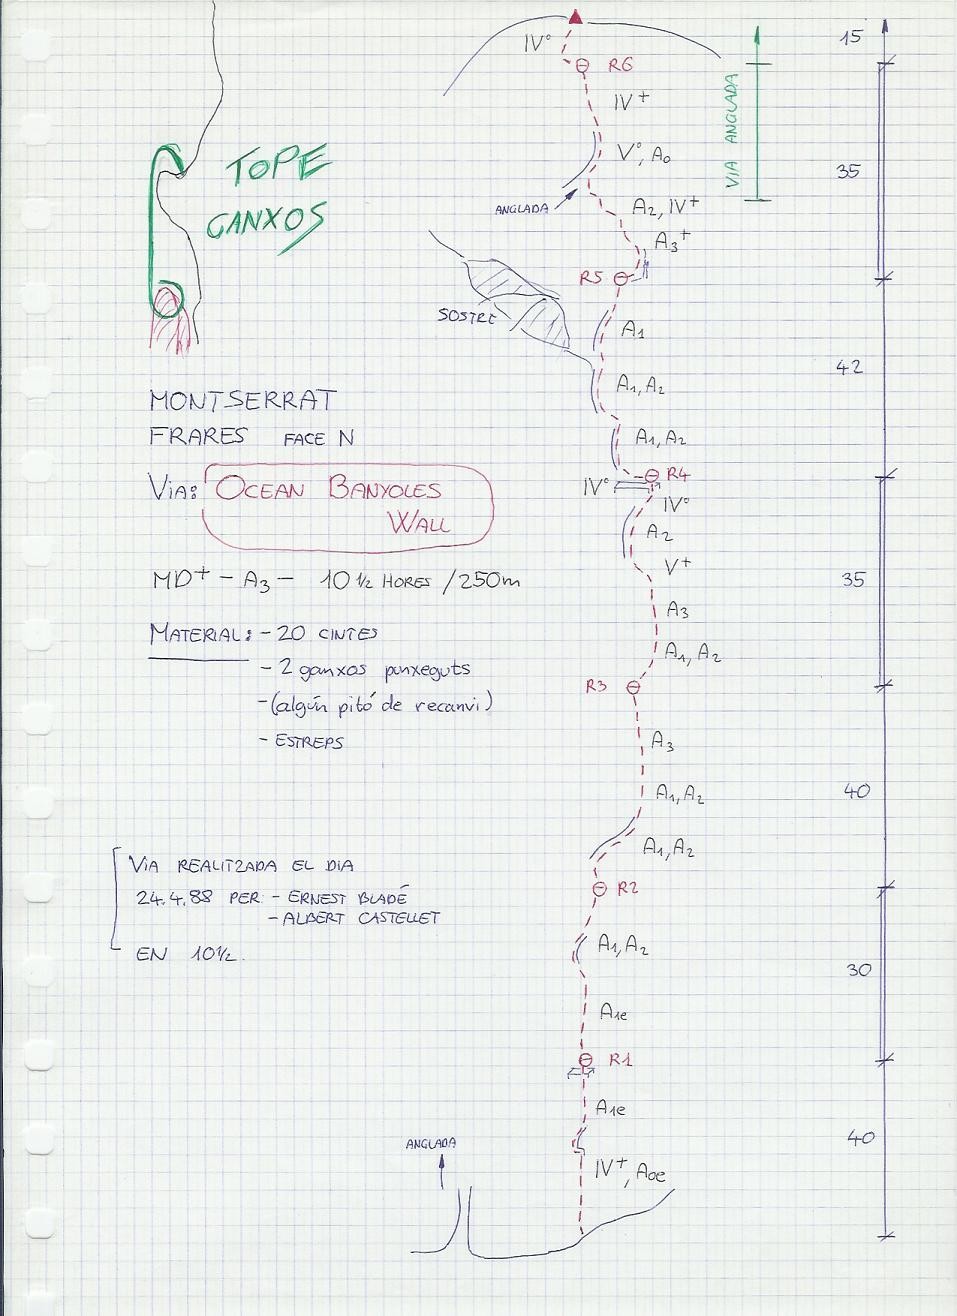 TOPE
GANXOS
MONTSERRAT
FRARES FACE N
VIA: OCEAN BANYOLES
WALL
MD+ - A3 - 10 1/2 HORES / 250m
MATERIAL: - 20 CINTES
- 2 ganxos punxeguts
- (algún pitó de recanvi)
- ESTREPS
VIA REALITZADA EL DIA
24.4.88 PER: - ERNEST BLADÉ
- ALBERT CASTELLET
EN 10 1/2.
IV°
R6
IV+
V°, A0
ANGLADA
A2, IV+
A3+
R5
SOSTRE
A1
A1, A2
A1, A2
R4
IV°
IV°
A2
V+
A3
A1, A2
R3
A3
A1, A2
A1, A2
R2
A1, A2
A1e
R1
A1e
ANGLADA
IV+, A0e
VIA ANGLADA
15
35
42
35
40
30
40